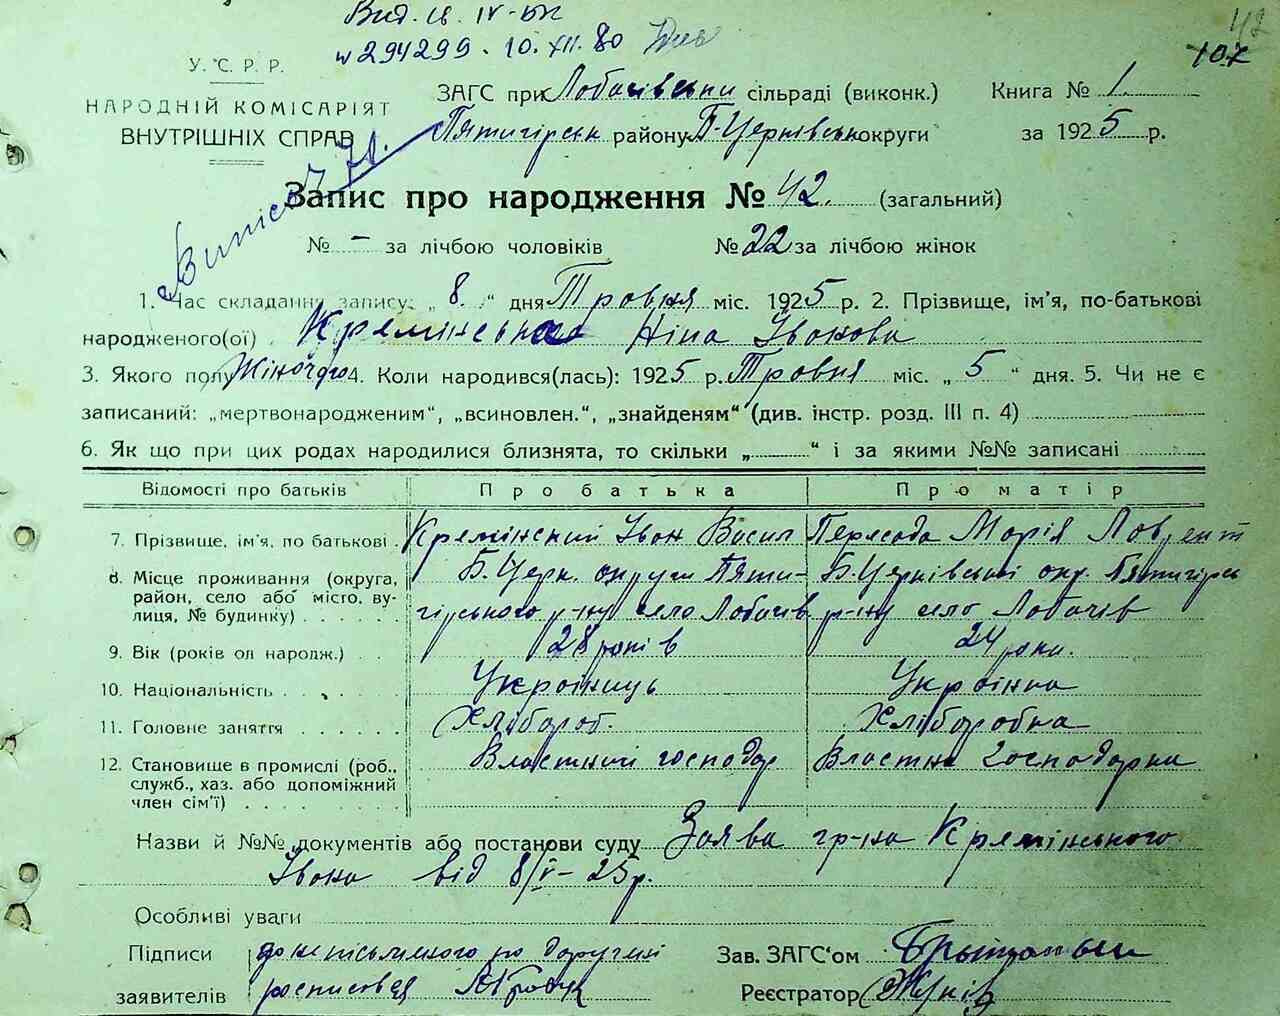 Вид. св. IV-БК
№ 294299 . 10. XII. 80
42
107
У. С. Р. Р.
НАРОДНІЙ КОМІСАРІЯТ
ВНУТРІШНІХ СПРАВ
ЗАГС при Лобачівськи сільраді (виконк.) Книга № 1.
Пятигірськ району Б-Церківськ округи за 1925 р.
Запис про народження № 42. (загальний)
№ – за лічбою чоловіків № 22 за лічбою жінок
1. Час складання запису: „ 8. “ дня Травня міс. 1925 р. 2. Прізвище, ім'я, по-батькові
народженого(ої) Кремінська Ніна Іванова
3. Якого полу Жіночого 4. Коли народився(лась): 1925 р. Травня міс. „ 5 “ дня. 5. Чи не є
записаний: „мертвонародженим“, „всиновлен.“, „знайденям“ (див. інстр. розд. III п. 4)
6. Як що при цих родах народилися близнята, то скільки „ “ і за якими №№ записані
Відомості про батьків Про батька Про матір
7. Прізвище, ім'я, по батькові Кремінский Іван Васил Пересада Марія Лаврент
8. Місце проживання (округа, Б. Церк. округи Пяти- Б. Церківської окр. Пятигірсь
район, село або місто, ву-
лиця, № будинку) гірського р-ну село Лобачів р-ну село Лобачів
9. Вік (років ол народж.) 28 років 24 роки.
10. Національність Українець Українка
11. Головне заняття Хлібороб. Хліборобка
12. Становище в промислі (роб., Властний господар Властна господарка
служб., хаз. або допоміжний
член сім'ї)
Назви й №№ документів або постанови суду Заява гр-на Кремінського
Івана від 8/V-25 р.
Особливі уваги
Підписи за неписьменного по даручені Зав. ЗАГС'ом
заявителів росписався Реєстратор